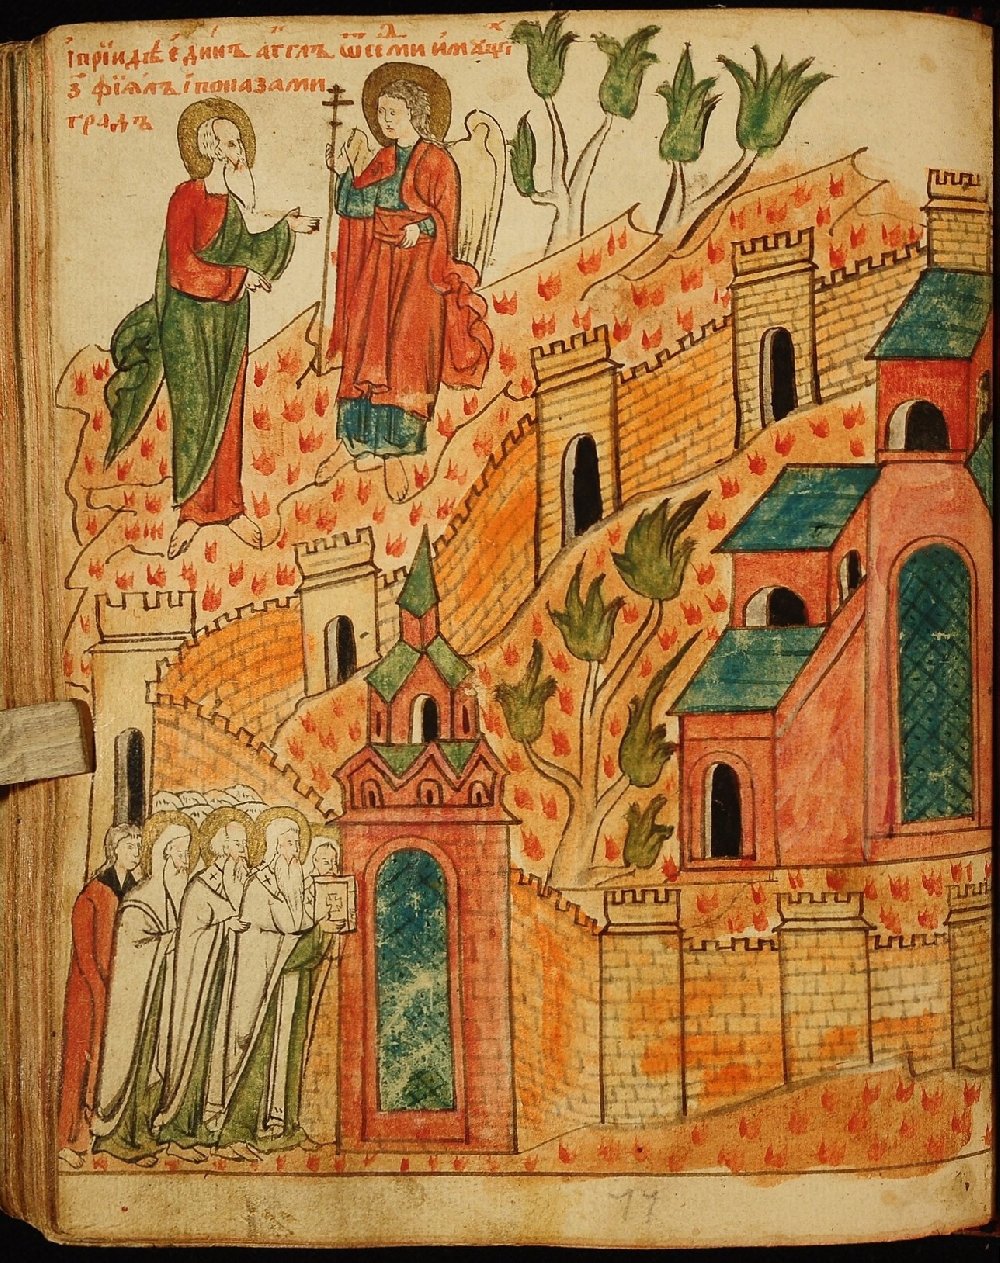 і҆прїидѣ є҆динъ а҆́гг҃лъ ѿсеми и҆мꙋщї
з҃ фїѧ́лъ і҆показами
градъ
77